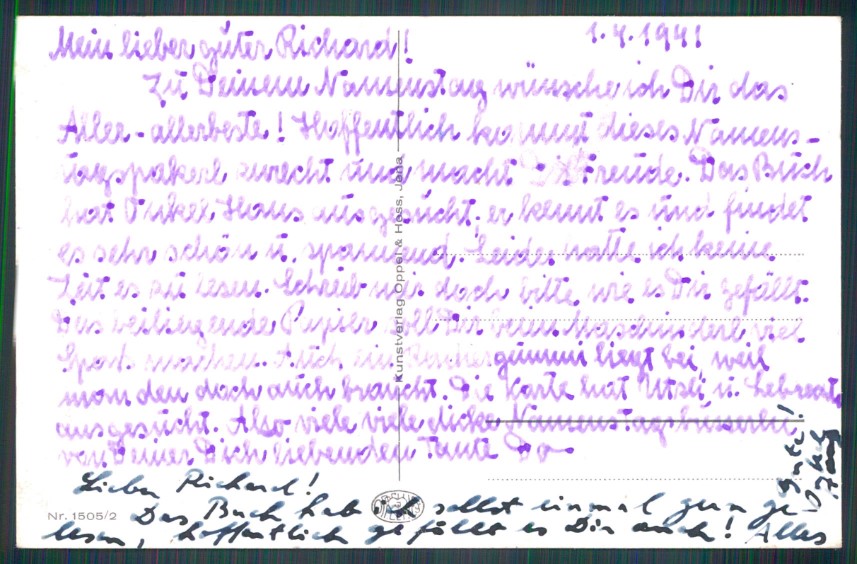 1.4.1941
Mein lieber guter Richard!
Zu Deinem Namenstag wünsche ich Dir das
Aller-allerbeste! Hoffentlich kommt dieses Namens-
tagspakerl zurecht und macht Dir Freude. Das Buch
hat Onkel Hans ausgesucht, er kennt es und findet
es sehr schön u. spannend. Leider hatte ich keine
Zeit es zu lesen. Schreib mir doch bitte, wie es Dir gefällt.
Das beiliegende Papier soll Dir beim viel
Spass machen. Auch ein gummi liegt bei, weil
man den doch auch braucht. Die Karte hat u.
ausgesucht. Also viele viele dicke Namenstagsbusserln
von Deiner Dich liebenden Tante Do
Lieber Richard!
Das Buch hab ich selbst einmal gern ge-
lesen, hoffentlich gefällt es Dir auch! Alles
Gute!
Onkel
Hans
Kunstverlag Oppel & Hess, Jena
Nr. 1505/2